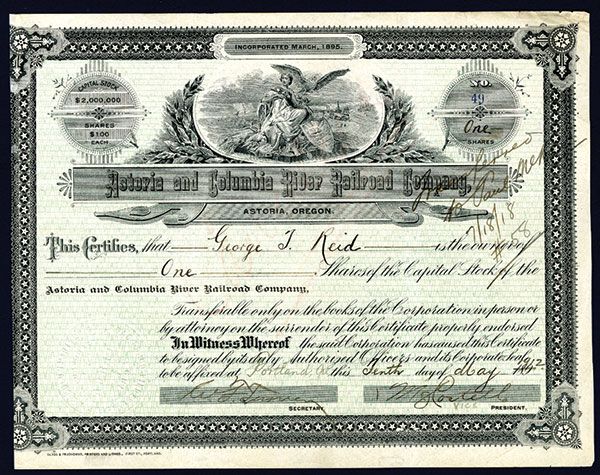 INCORPORATED MARCH, 1895.
CAPITAL STOCK
$2,000,000
SHARES
$100
EACH
NO.
49
One
SHARES
Astoria and Columbia River Railroad Company,
ASTORIA, OREGON.
7/18/18
This Certifies, that George T. Reid is the owner of
One Shares of the Capital Stock of the
Astoria and Columbia River Railroad Company,
Transferable only on the books of the Corporation in person or
by attorney on the surrender of this Certificate properly endorsed
In Witness Whereof the said Corporation has caused this Certificate
to be signed by its duly Authorized Officers and its Corporate Seal
to be affixed at Portland, Or this Tenth day of May 1912
SECRETARY
VICE PRESIDENT.